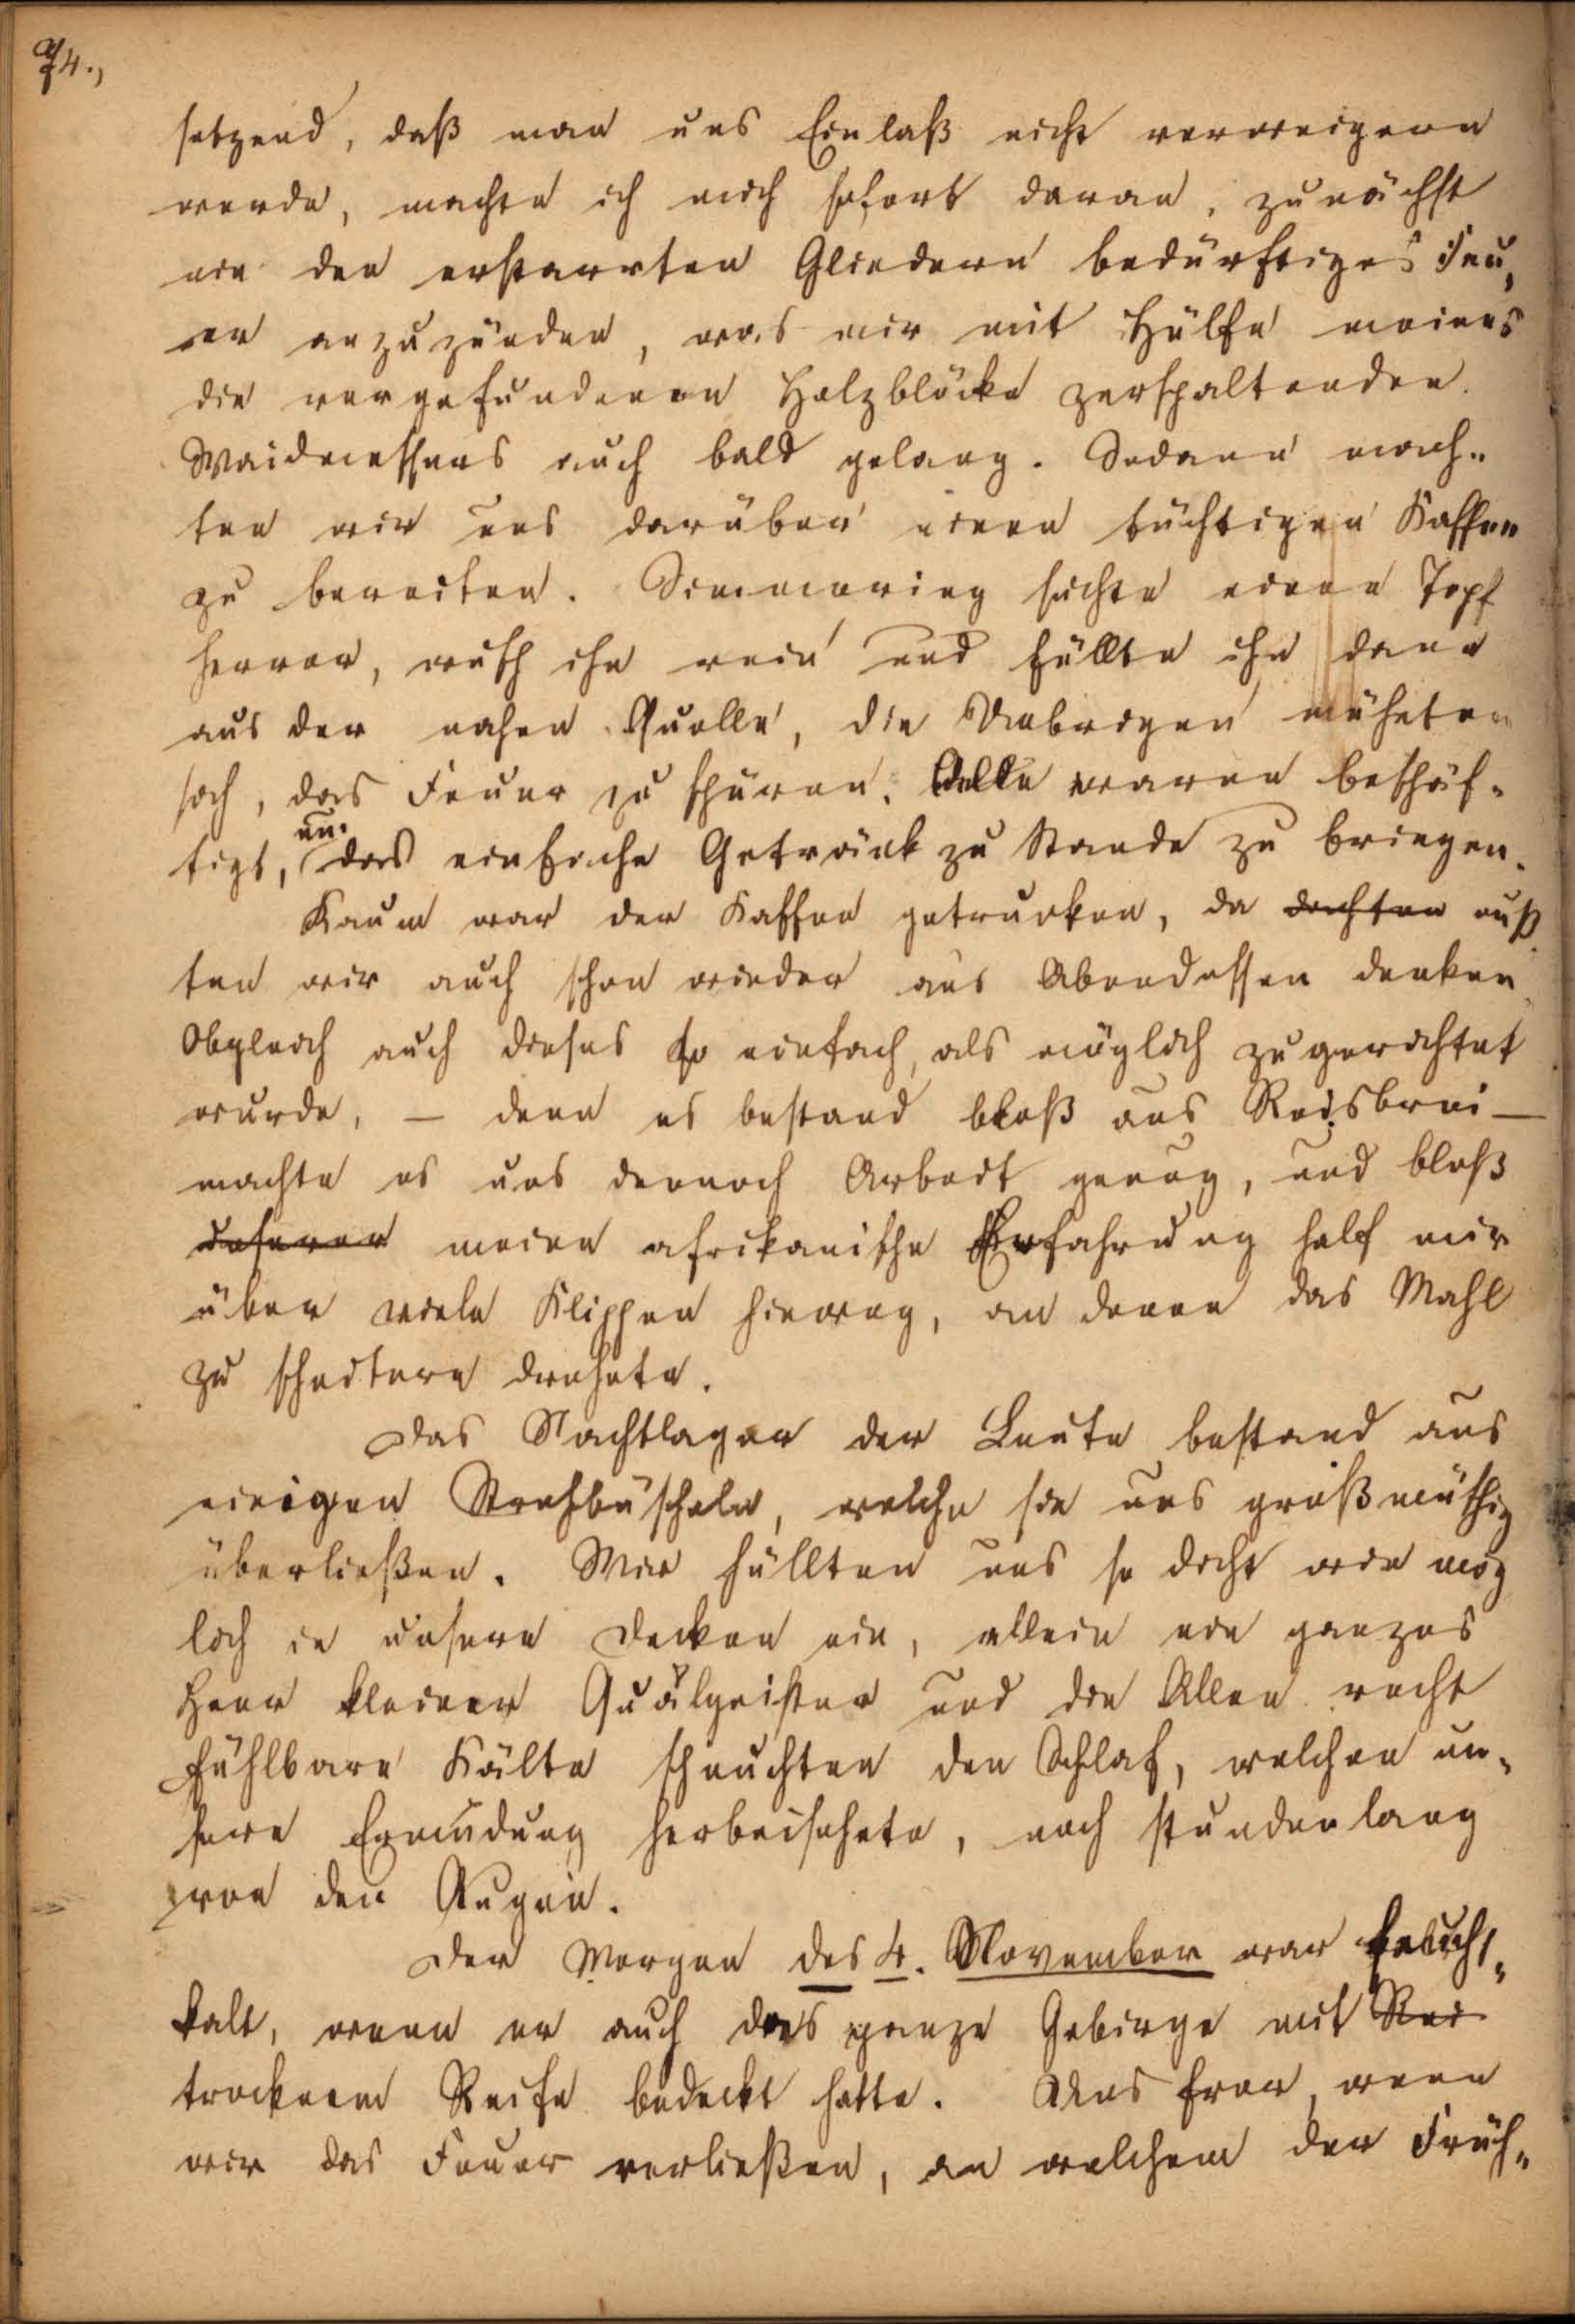 74.,
setzend, daß man uns Einlaß nicht verweigern
werde, machte ich mich sofort daran, zunächst
ein den erstarrten Gliedern bedürftiges Feu„
er anzuzünden, was mir mit Hülfe meines
die vorgefundenen Holzblöcke zerspaltenden
Waidmessers auch bald gelang. Sodann mach„
ten wir uns darüber einen tüchtigen Kaffee
zu bereiten. Simmering suchte einen Topf
hervor, wusch ihn rein und füllte ihn dann
aus der nahen Quelle, die Uebrigen mühten
sich, das Feuer zu schüren. Alle waren beschäf„
tigt, um das einfache Getränk zu Stande zu bringen.
Kaum war der Kaffee getrunken, da dachten muß„
ten wir auch schon wieder ans Abendessen denken
Obgleich auch dieses so einfach, als möglich zugerichtet
wurde, – denn es bestand bloß aus Reisbrei –
machte es uns dennoch Arbeit genug, und bloß
unserer meine afrikanische Erfahrung half mir
über viele Klippen hinweg, an denen das Mahl
zu scheitern drohete.
Das Nachtlager der Leute bestand aus
einigen Strohbüscheln, welche sie uns großmüthig
überließen. Wir hüllten uns so dicht wie mög
lich in unsere Decken ein, allein ein ganzes
Heer kleiner Quälgeister und die Allen recht
fühlbare Kälte scheuchten den Schlaf, welchen un„
sere Ermüdung herbeisehnte, noch stundenlang
von den Augen.
Der Morgen des 4. November war feucht„
kalt, wenn er auch das ganze Gebirge mit Rei
trocknem Reife bedeckt hatte. Uns fror, wenn
wir das Feuer verließen, an welchem der Früh„